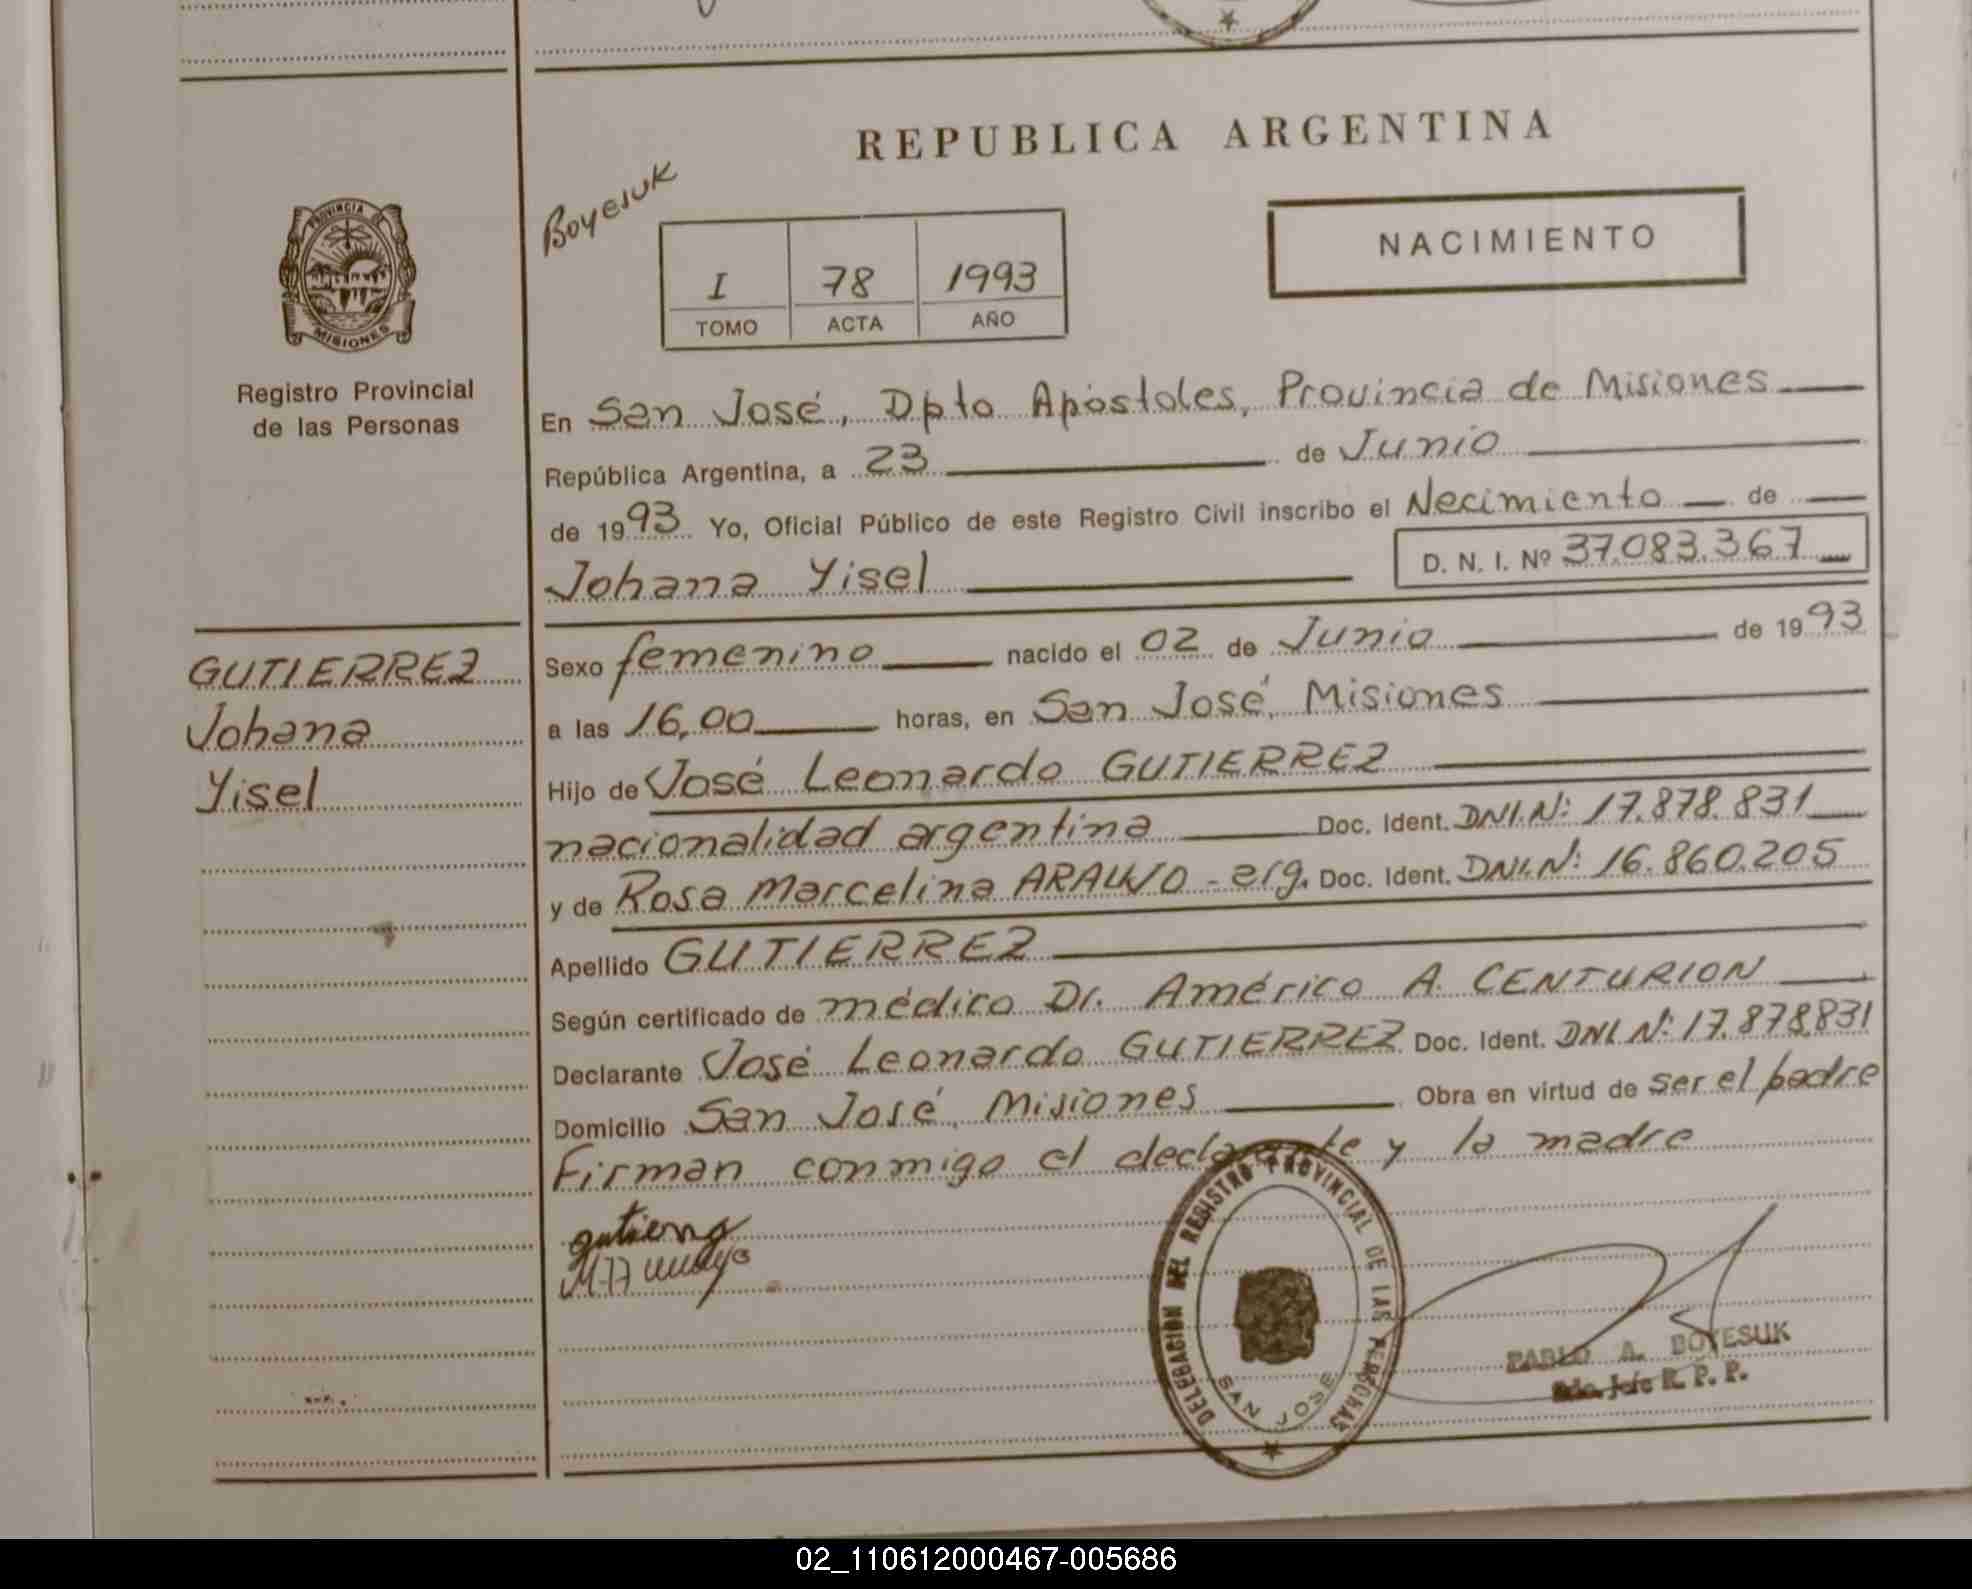 REPUBLICA ARGENTINA
Boyesuk
NACIMIENTO
I 78 1993
TOMO ACTA AÑO
PROVINCIA
MISIONES
Registro Provincial
de las Personas
GUTIERREZ
Johana
Yisel
En San José, Dpto Apóstoles, Provincia de Misiones
República Argentina, a 23 de Junio
de 1993 Yo, Oficial Público de este Registro Civil inscribo el Nacimiento de
Johana Yisel D. N. I. Nº 37.083.367
Sexo femenino nacido el 02 de Junio de 1993
a las 16,00 horas, en San José, Misiones
Hijo de José Leonardo GUTIERREZ
nacionalidad argentina Doc. Ident. DNI.Nº: 17.878.831
y de Rosa Marcelina ARAUJO - arg. Doc. Ident. DNI.Nº: 16.860.205
Apellido GUTIERREZ
Según certificado de médico Dr. Américo A. CENTURION
Declarante José Leonardo GUTIERREZ Doc. Ident. DNI Nº: 17.878.831
Domicilio San José, Misiones Obra en virtud de ser el padre
Firman conmigo el declarante y la madre
DELEGACION DEL REGISTRO PROVINCIAL DE LAS PERSONAS
SAN JOSE
PABLO A. BOYESUK
Jefe R. P. P.
02_110612000467-005686